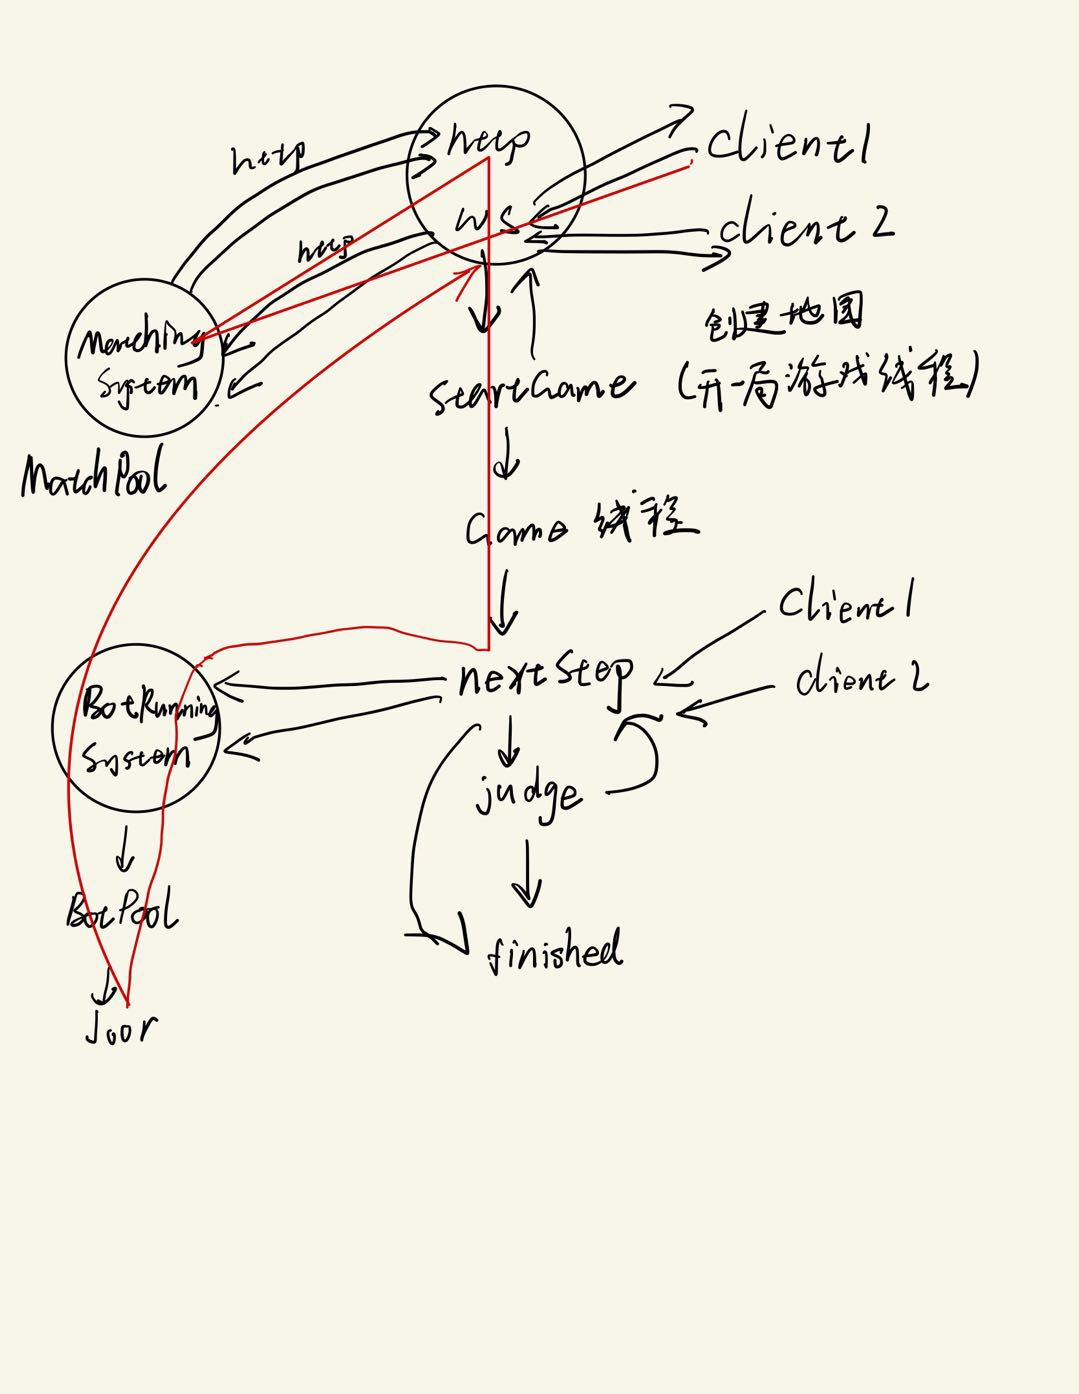 http
http
ws
Client1
Client2
http
Matching
System
MatchPool
创建地图
StartGame (开一局游戏线程)
Game 线程
Client1
nextStep
Client2
BotRunning
System
judge
BotPool
finished
Joor